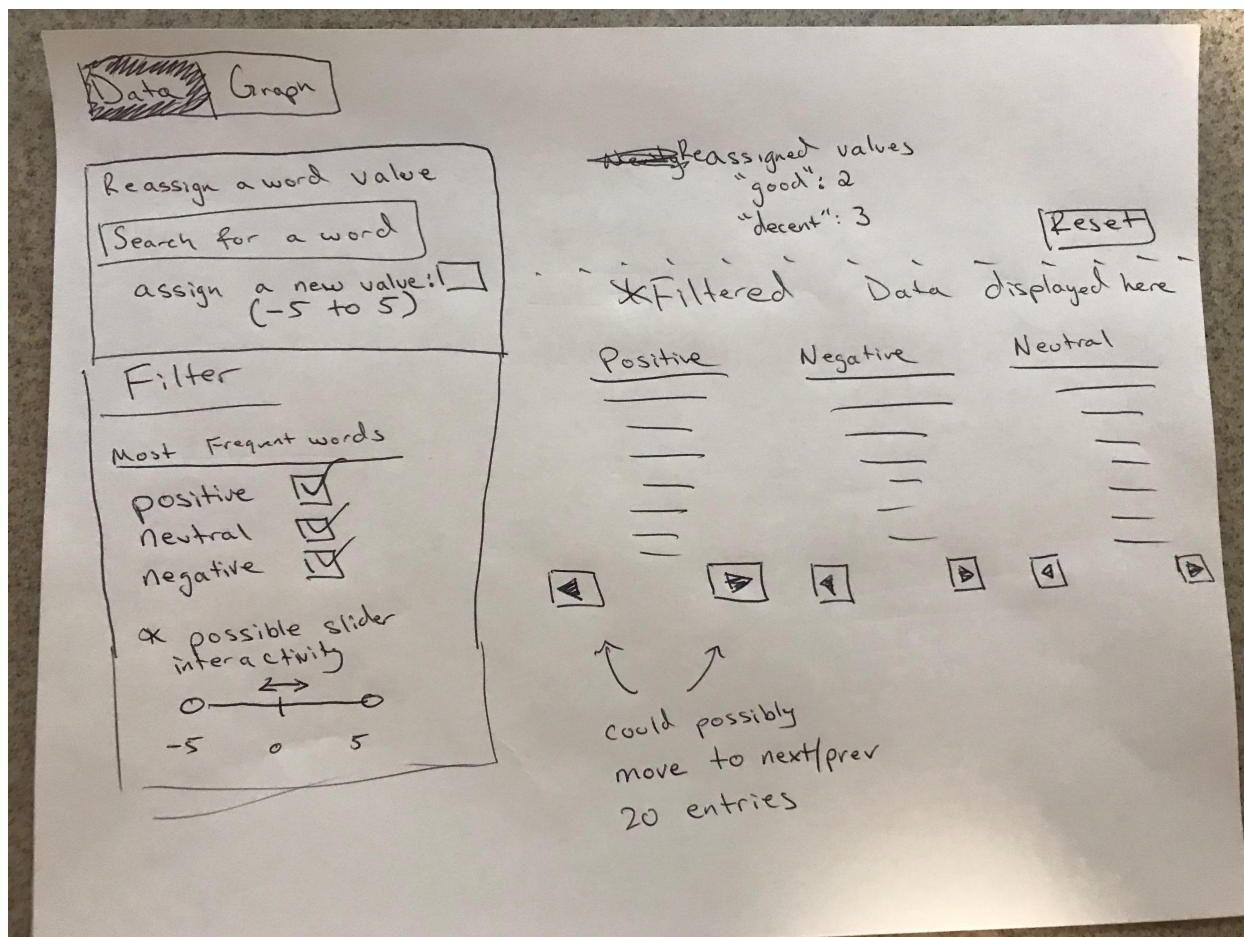 Data Graph
Reassign a word value
Search for a word
assign a new value:
(-5 to 5)
Filter
Most Frequent words
positive
neutral
negative
* possible slider
interactivity
-5 0 5
Reassigned values
"good": 2
"decent": 3
Reset
*Filtered Data displayed here
Positive Negative Neutral
could possibly
move to next/prev
20 entries